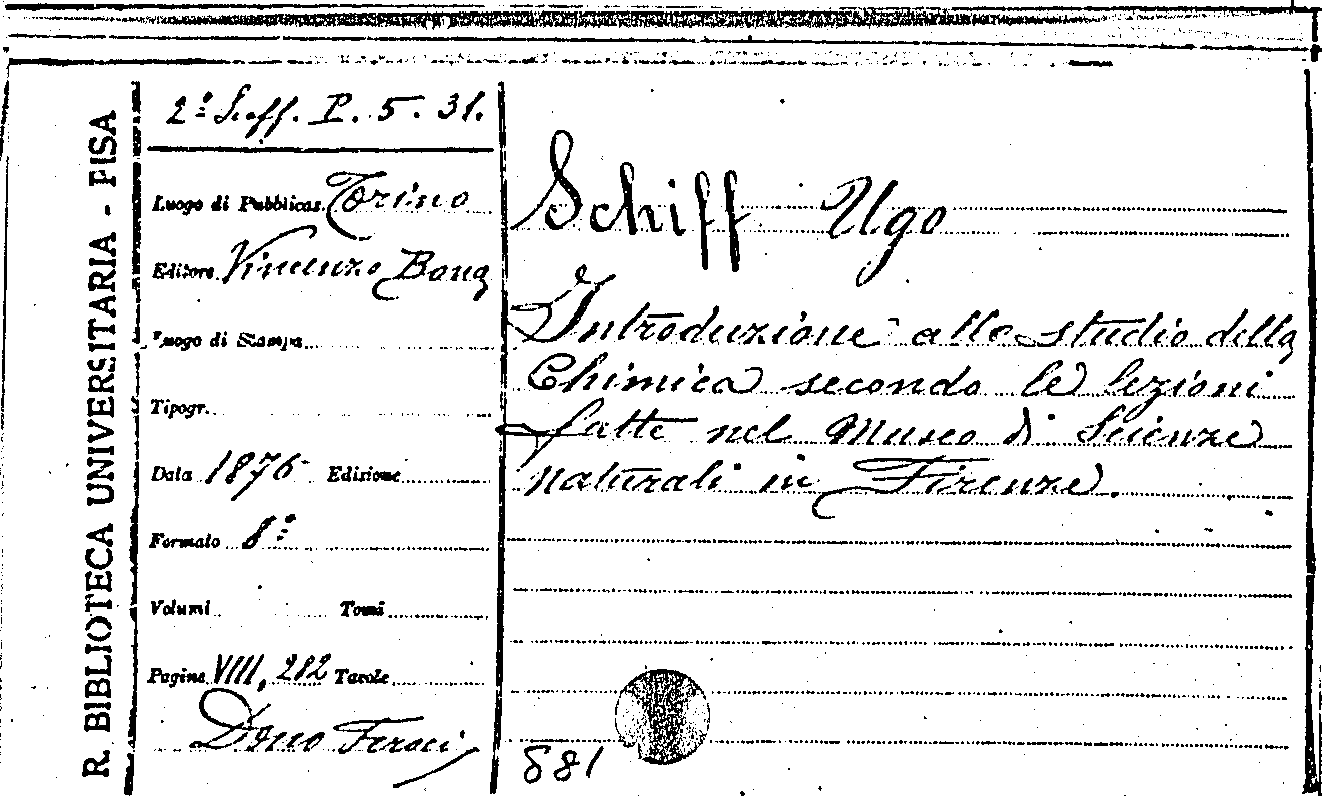 R. BIBLIOTECA UNIVERSITARIA - PISA
2º Suff. P. 5. 31.
Luogo di Pubblicaz. Torino
Editore Vincenzo Bona
Luogo di Stampa
Tipogr.
Data 1876 Edizione
Formato 8º
Volumi Tomi
Pagine VIII, 282 Tavole
Dono Feroci
Schiff Ugo
Introduzione allo studio della
Chimica secondo le lezioni
fatte nel Museo di Scienze
naturali in Firenze.
881